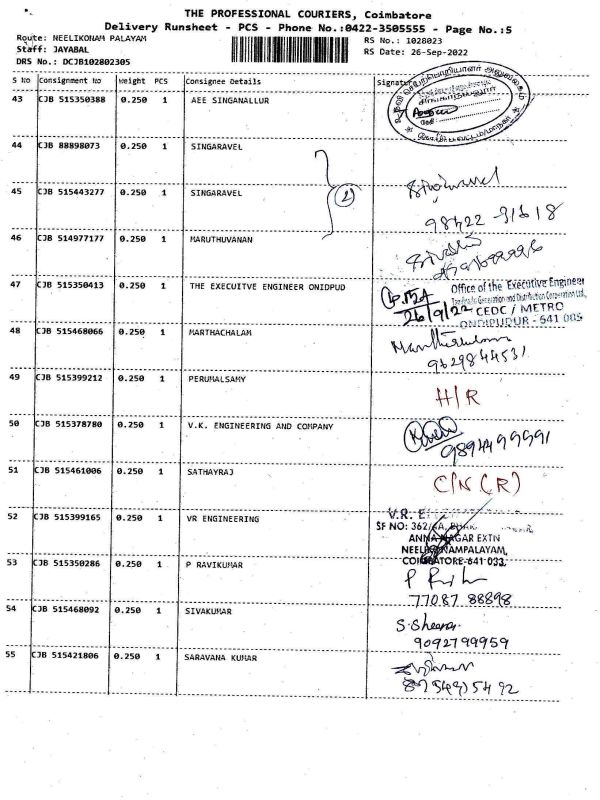 THE PROFESSIONAL COURIERS, Coimbatore
Delivery Runsheet - PCS - Phone No.:0422-3505555 - Page No.:5
Route: NEELIKONAM PALAYAM
RS No.: 1028023
Staff: JAYABAL
RS Date: 26-Sep-2022
DRS No.: DCJB102802305
S No Consignment No Weight PCS Consignee Details Signature
43 CJB 515350388 0.250 1 AEE SINGANALLUR
44 CJB 88898073 0.250 1 SINGARAVEL
45 CJB 515443277 0.250 1 SINGARAVEL
2
98422 31618
46 CJB 514977177 0.250 1 MARUTHUVANAN
47 CJB 515350413 0.250 1 THE EXECUITVE ENGINEER ONIDPUD
Office of the Executive Engineer
Tamilnadu Generation and Distribution Corporation Ltd.,
26/9/22 CEDC / METRO
ONDIPUDUR - 641 005
48 CJB 515468066 0.250 1 MARTHACHALAM
9629844531
49 CJB 515399212 0.250 1 PERUMALSAMY
H/R
50 CJB 515378780 0.250 1 V.K. ENGINEERING AND COMPANY
9894499991
51 CJB 515461006 0.250 1 SATHAYRAJ
C/N (R)
52 CJB 515399165 0.250 1 VR ENGINEERING
V.R.
SF NO: 362/4A,
ANNA NAGAR EXTN
NEELIKONAMPALAYAM,
COIMBATORE-641 033.
53 CJB 515350286 0.250 1 P RAVIKUMAR
77087 88898
54 CJB 515468092 0.250 1 SIVAKUMAR
9092799959
55 CJB 515421806 0.250 1 SARAVANA KUMAR